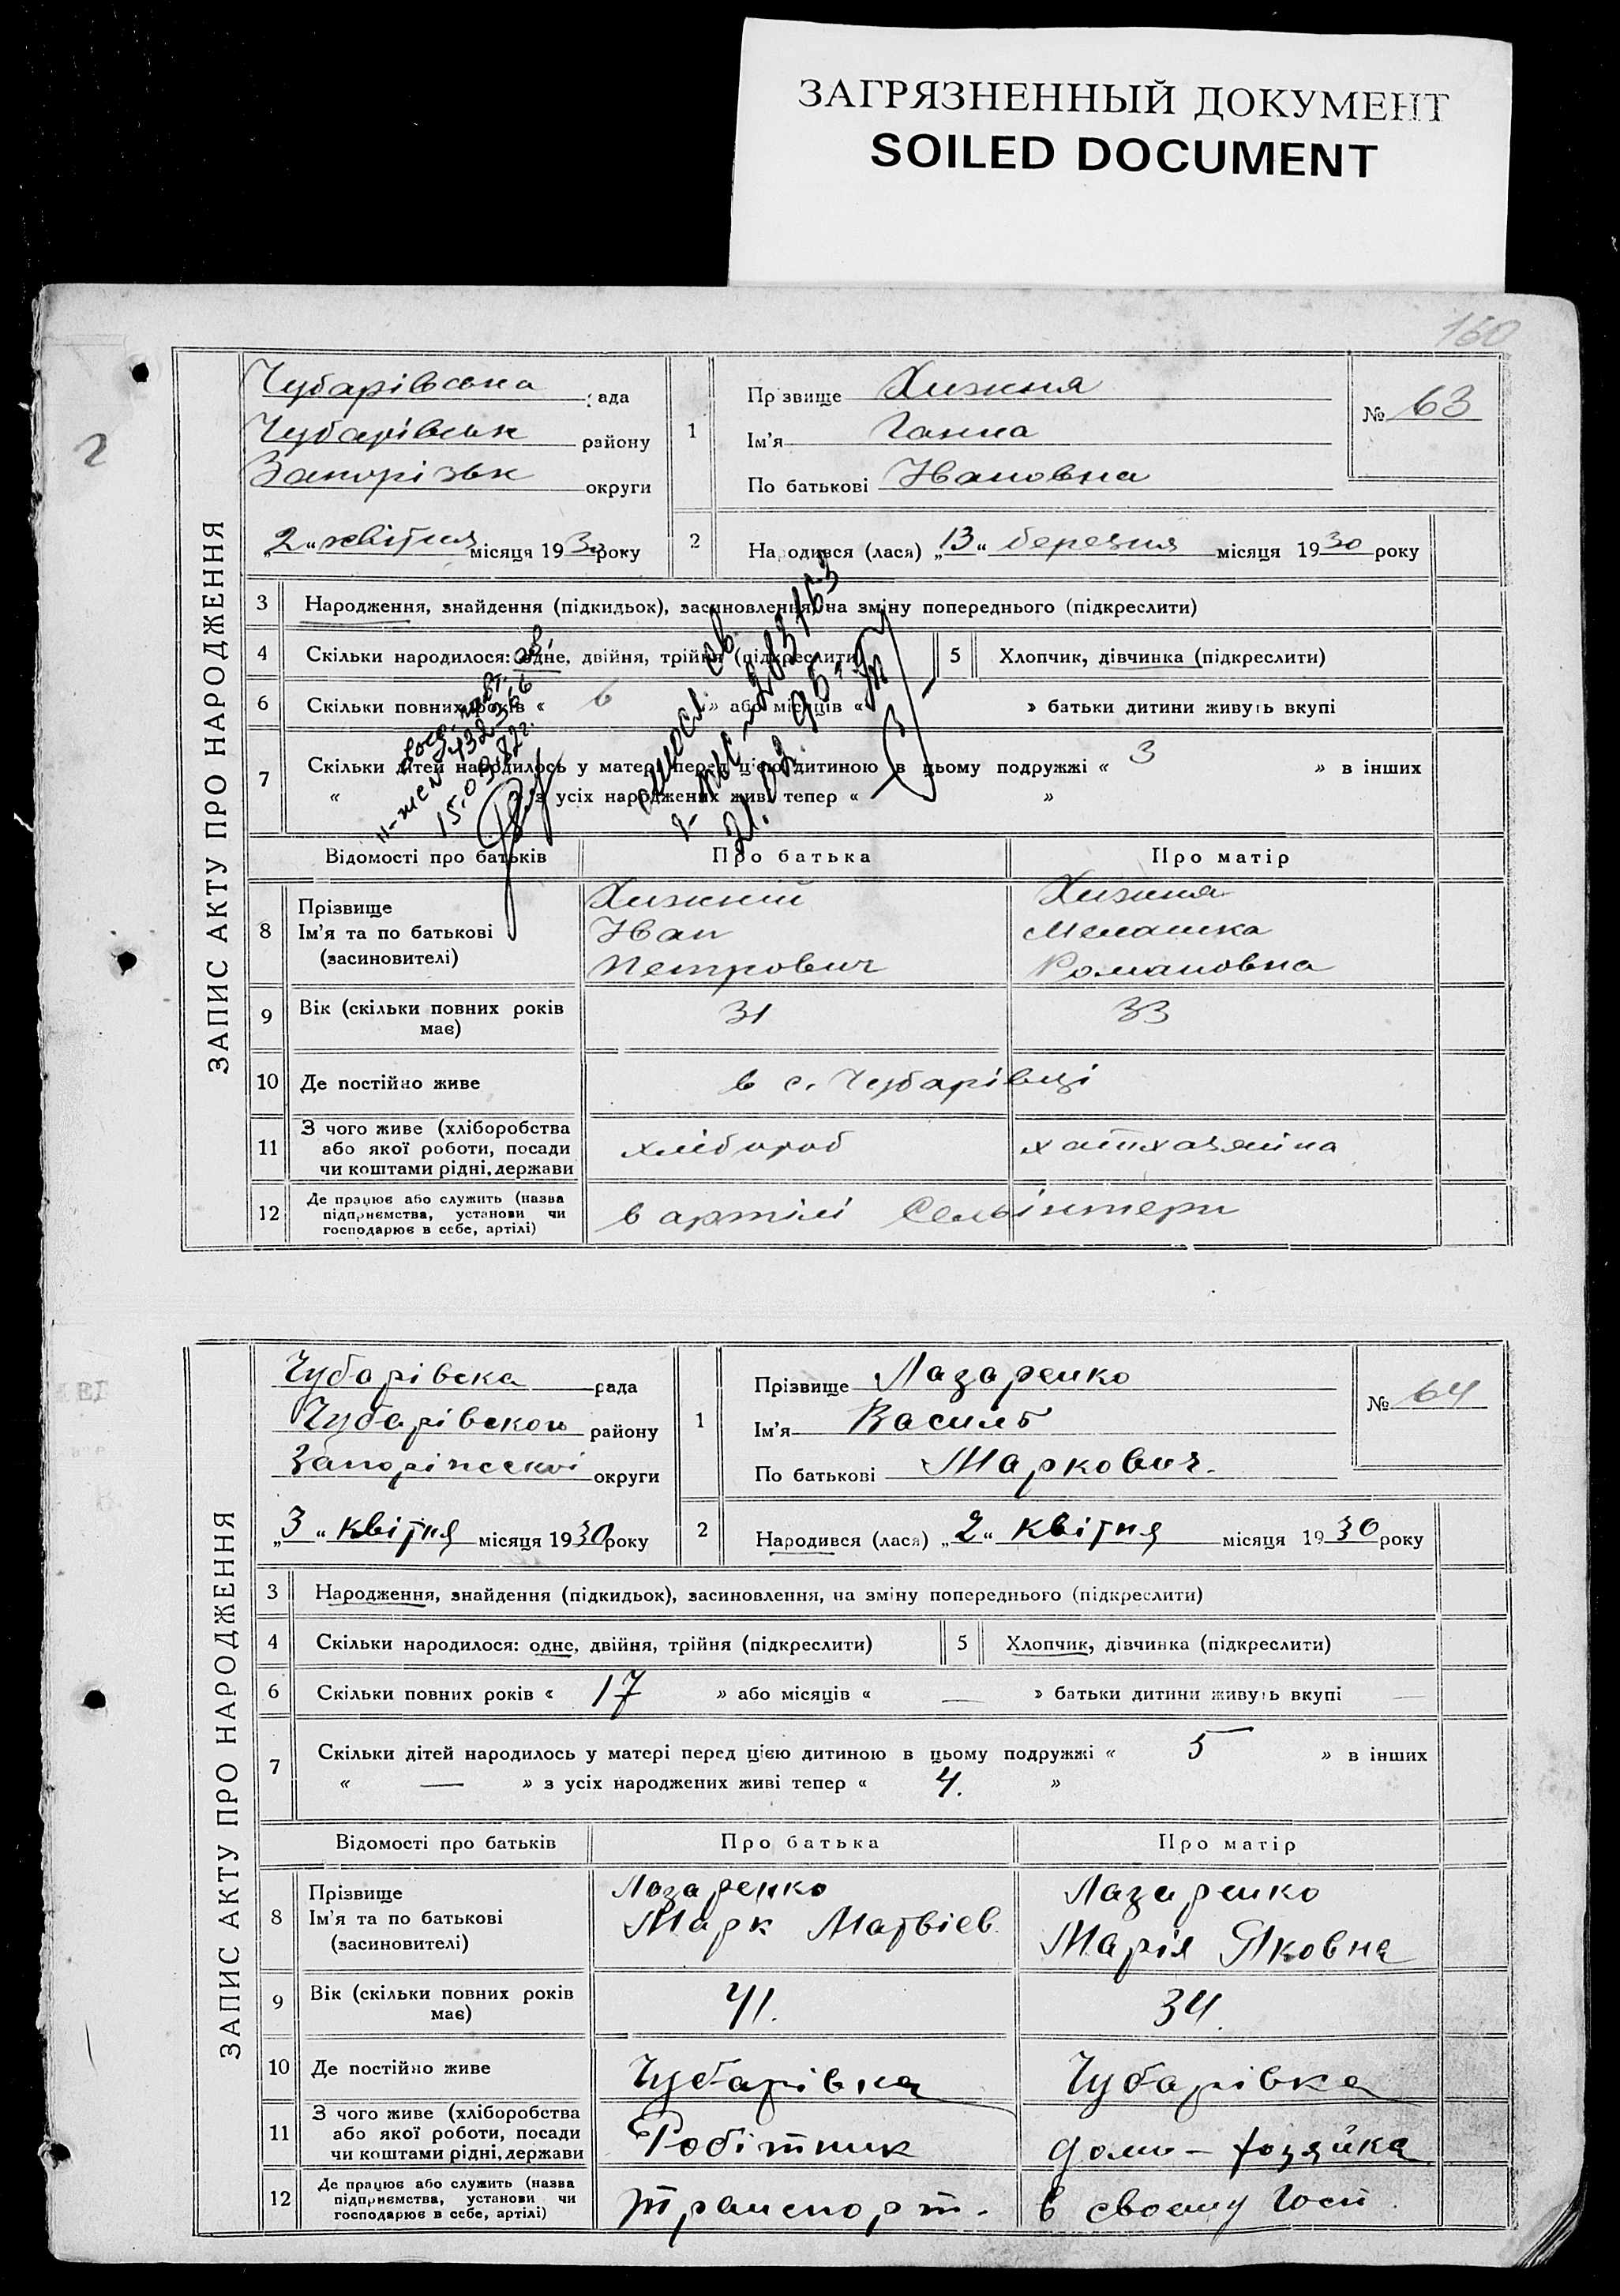 ЗАГРЯЗНЕННЫЙ ДОКУМЕНТ
SOILED DOCUMENT
160
2
ЗАПИС АКТУ ПРО НАРОДЖЕННЯ
Чубарівська рада
Чубарівськ району
Запорізьк округи
„2“ квітня місяця 1930 року
1
Прізвище Хижня
Ім'я Ганна
По батькові Івановна
№ 63
2
Народився (лася) „13“ березня місяця 1930 року
3 Народження, знайдення (підкидьок), засиновлення, на зміну попереднього (підкреслити)
4 Скільки народилося: одне, двійня, трійня (підкреслити)
5 Хлопчик, дівчинка (підкреслити)
6 Скільки повних років « 6 » або місяців « » батьки дитини живуть вкупі
7 Скільки дітей народилось у матері перед цією дитиною в цьому подружжі « 3 » в інших
« » з усіх народжених живі тепер « »
15.09.82г.
Відомості про батьків Про батька Про матір
8 Прізвище
Ім'я та по батькові
(засиновителі)
Хижний
Иван
Петрович
Хижня
Мелашка
Романовна
9 Вік (скільки повних років
має)
31 33
10 Де постійно живе в с. Чубарівці
11 З чого живе (хліборобства
або якої роботи, посади
чи коштами рідні, держави
хлібороб хатхазяйка
12 Де працює або служить (назва
підприємства, установи чи
господарює в себе, артілі)
в артілі
ЗАПИС АКТУ ПРО НАРОДЖЕННЯ
Чубарівска рада
Чубарівскою району
округи
„3“ квітня місяця 1930 року
1
Прізвище Лазаренко
Ім'я Василь
По батькові Маркович.
№ 64
2
Народився (лася) „2“ квітня місяця 1930 року
3 Народження, знайдення (підкидьок), засиновлення, на зміну попереднього (підкреслити)
4 Скільки народилося: одне, двійня, трійня (підкреслити)
5 Хлопчик, дівчинка (підкреслити)
6 Скільки повних років « 17 » або місяців « — » батьки дитини живуть вкупі —
7 Скільки дітей народилось у матері перед цією дитиною в цьому подружжі « 5 » в інших
« — » з усіх народжених живі тепер « 4. »
Відомості про батьків Про батька Про матір
8 Прізвище
Ім'я та по батькові
(засиновителі)
Лазаренко
Марк Матвіев.
Лазаренко
Марія Яковна
9 Вік (скільки повних років
має)
41. 34.
10 Де постійно живе Чубарівка Чубарівка
11 З чого живе (хліборобства
або якої роботи, посади
чи коштами рідні, держави
Робітник домо-хозяйка
12 Де працює або служить (назва
підприємства, установи чи
господарює в себе, артілі)
транспорт. в своему Госп.